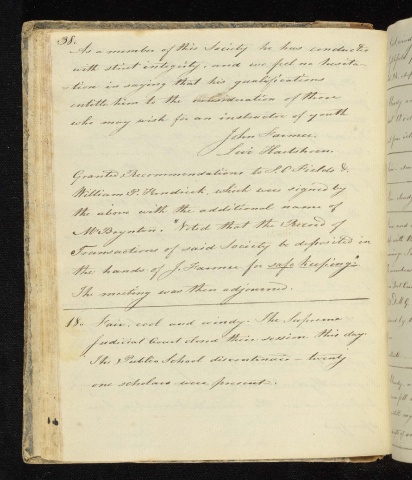 38.
As a member of this Society he has conducted
with strict integrity, and we feel no hesita-
tion in saying that his qualifications
entitle him to the consideration of those
who may wish for an instructor of youth
John Farmer.
Levi Hartshorn.
Granted Recommendations to S. P. Fields &
William P. Kendrick, which were signed by
the above with the additional name of
Mr Boynton. "Voted that the Record of
Transactions of said Society be deposited in
the hands of J. Farmer for safe keeping".
The meeting was then adjourned.
18. Fair, cool and windy. The Supreme
Judicial Court closed their session this day.
The Public School discontinues - twenty
one scholars were present.